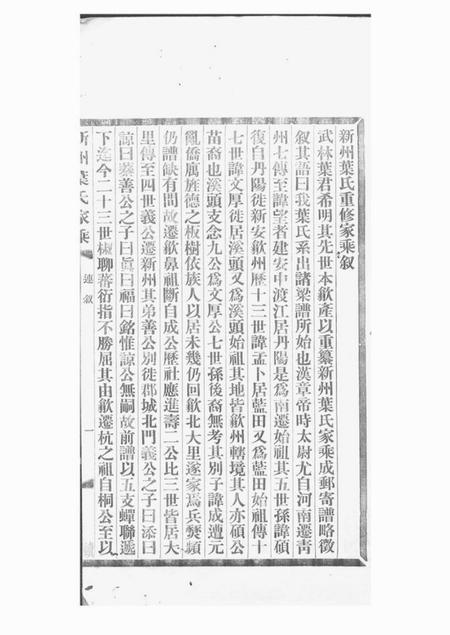 新州葉氏重修家乘叙
武林葉君希明其先世本歙產以重纂新州葉氏家乘成郵寄譜略徵
叙其語曰我葉氏系出諸梁譜所始也漢章帝時太尉尤自河南遷青
州七傳至諱望者建安中渡江居丹陽是爲南遷始祖其五世孫諱碩
復自丹陽徙新安歙州歷十三世諱孟卜居藍田又爲藍田始祖傳十
七世諱文厚徙居溪頭又爲溪頭始祖其地皆歙州轄境其人亦碩公
苗裔也溪頭支念九公爲文厚公七世孫後裔無考其別子諱成遭元
亂僑寓旌德之板樹依族人以居未幾仍回歙北大里遂家焉兵燹頻
仍譜缺有間故遷歙鼻祖斷自成公歷社應進壽二公比三世皆居大
里傳至四世義公遷新州其弟善公別徙郡城北門義公之子曰添曰
諒曰蓁善公之子曰眞曰福曰銘惟諒公無嗣故前譜以五支蟬聯遞
下迄今二十三世椒聊蕃衍指不勝屈其由歙遷杭之祖自桐公至以
新州葉氏家乘
連叙
一